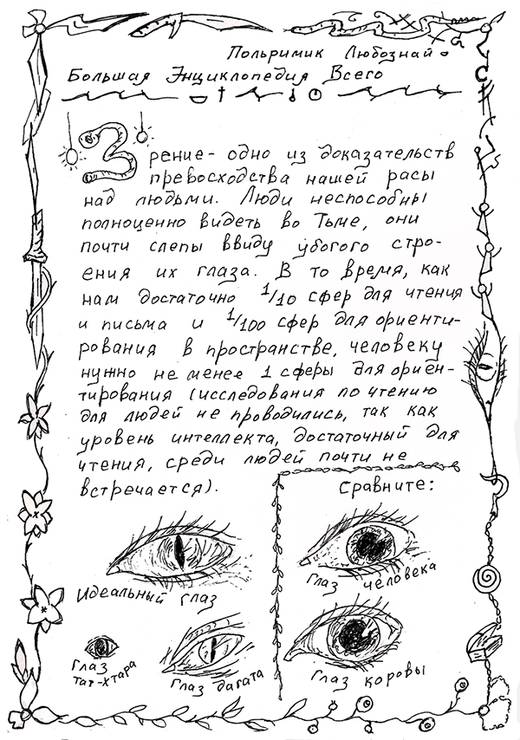 Польримик Любознай
Большая Энциклопедия Всего
Зрение - одно из доказательств
превосходства нашей расы
над людьми. Люди неспособны
полноценно видеть во Тьме, они
почти слепы ввиду убогого стро-
ения их глаза. В то время, как
нам достаточно 1/10 сфер для чтения
и письма и 1/100 сфер для ориенти-
рования в пространстве, человеку
нужно не менее 1 сферы для ориен-
тирования (исследования по чтению
для людей не проводились, так как
уровень интеллекта, достаточный для
чтения, среди людей почти не
встречается).
Сравните:
Идеальный глаз
Глаз человека
Глаз
тат-хтара
Глаз дагата
Глаз коровы